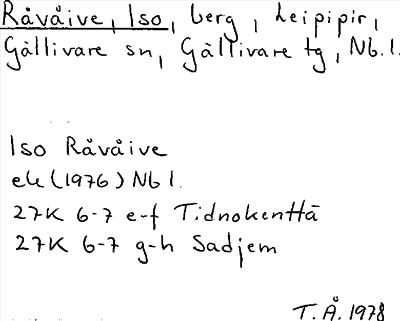 Råvåive, Iso, berg, Leipipir,
Gällivare sn, Gällivare tg, Nb.l.
Iso Råvåive
ek (1976) Nb l.
27K 6-7 e-f Tidnokenttä
27K 6-7 g-h Sadjem
T.Å. 1978